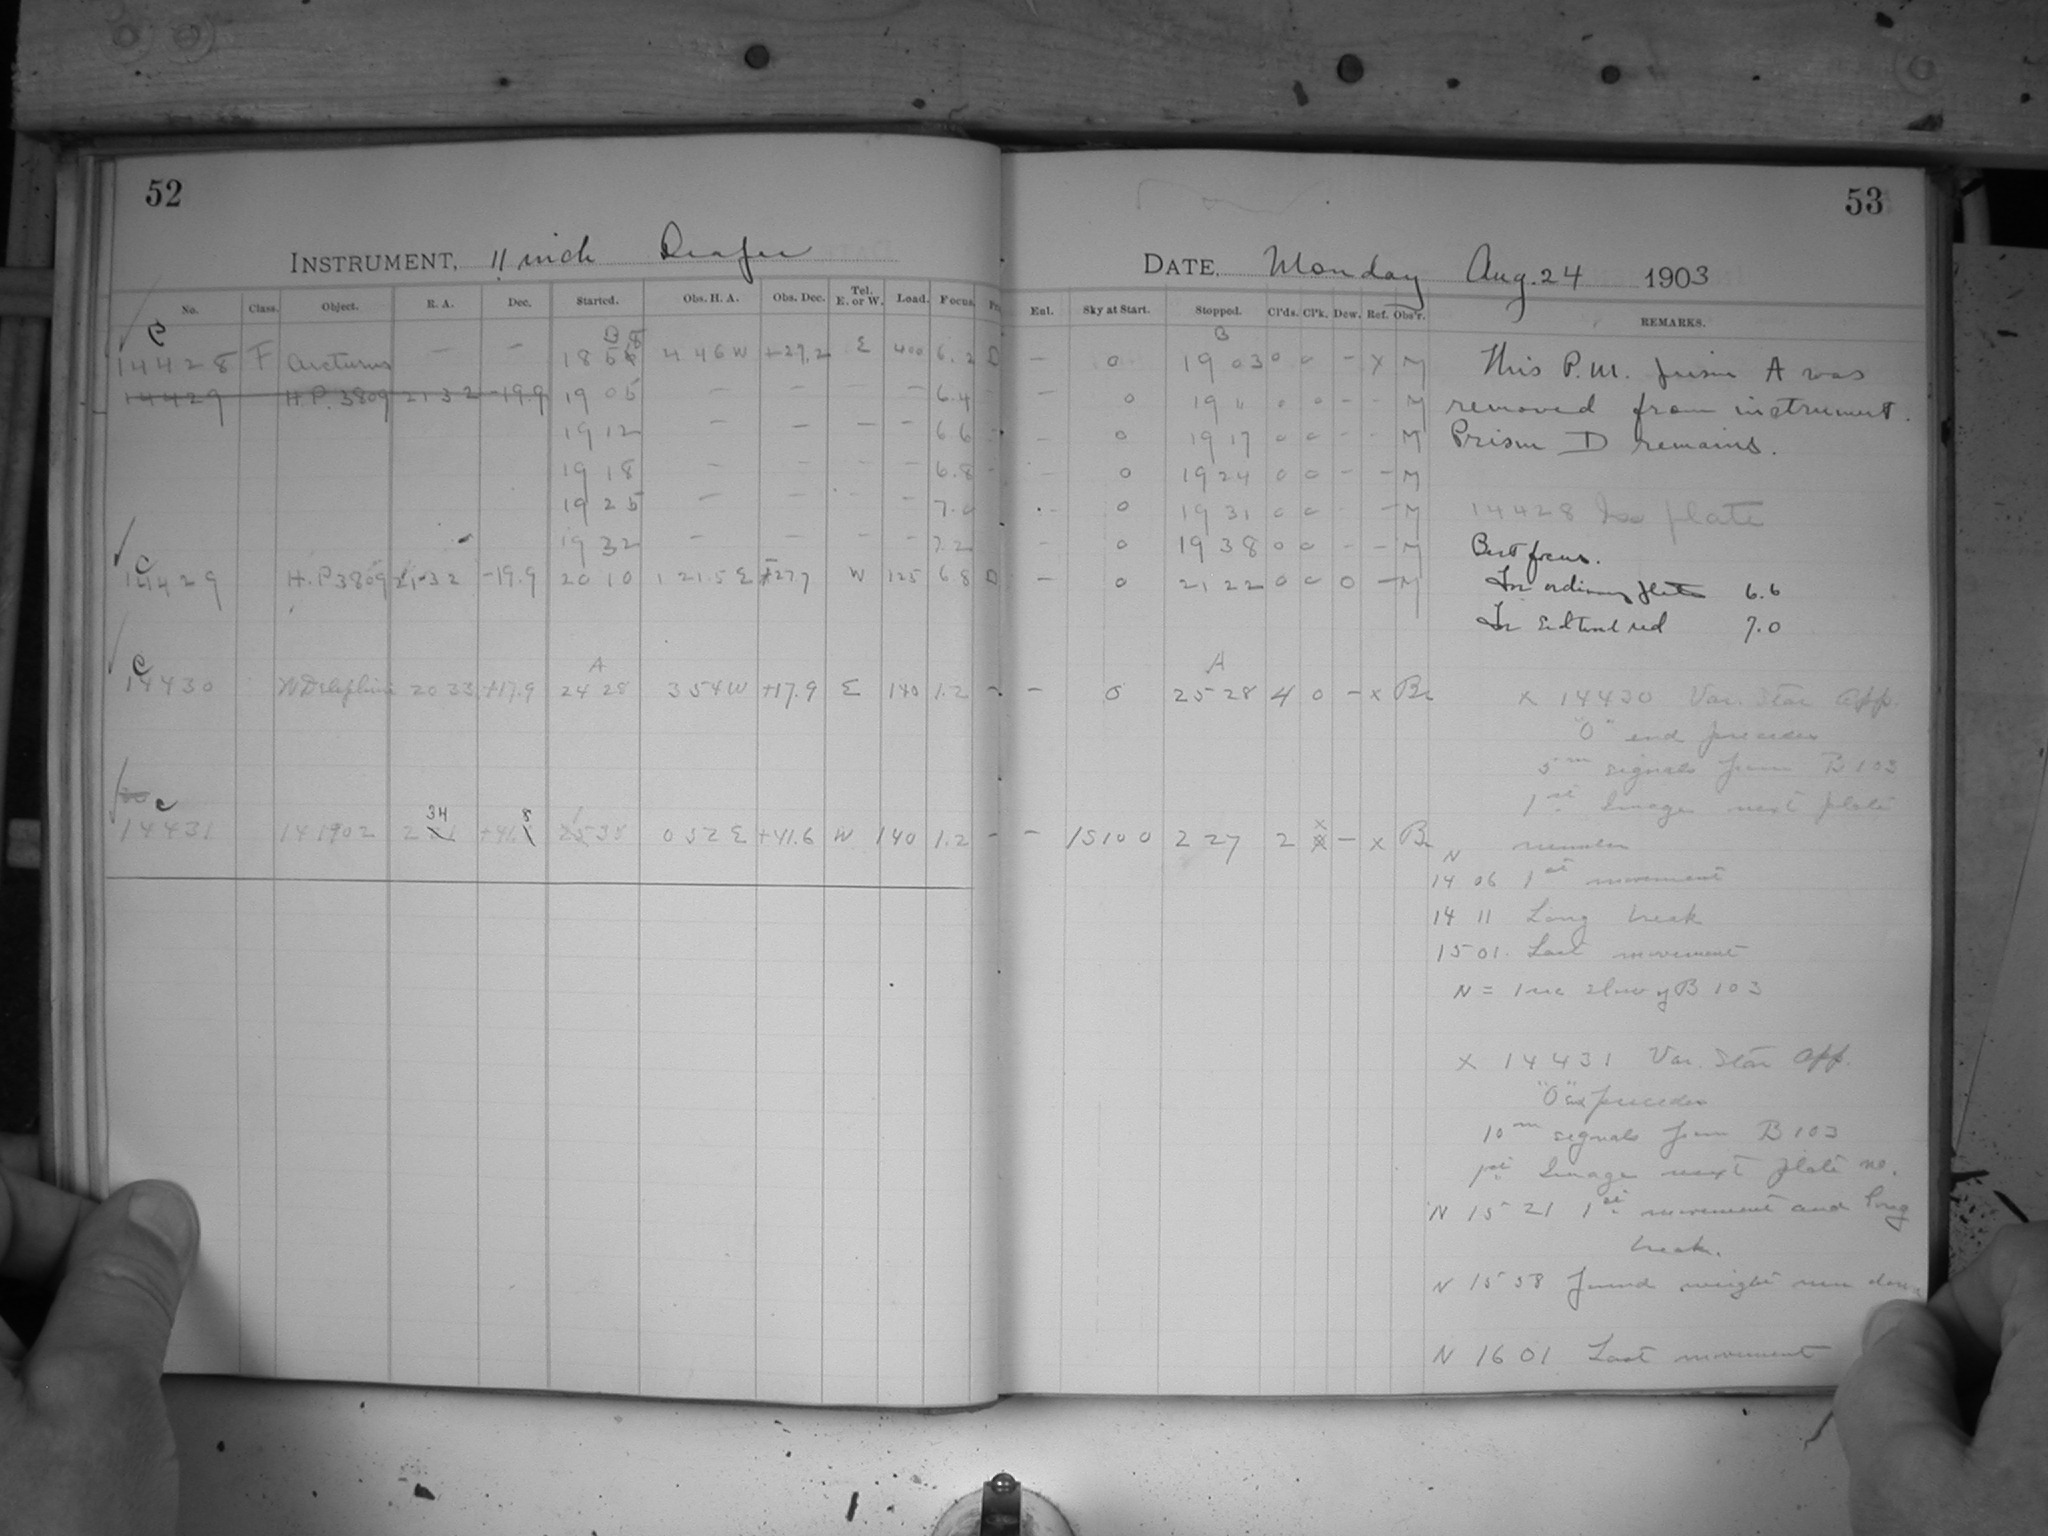 52
INSTRUMENT, 11 inch Draper
No. Class. Object. R. A. Dec. Started. Obs. H. A. Obs. Dec. Tel. E. or W. Load. Focus.
C
14428 F Arcturus — — 18 58 4 46 W +29.2 E 400 6.2 D
14429 H.P. 3809 21 32 -19.9 19 05 — — — — 6.4
19 12 — — — — 6.6
19 18 — — — — 6.8
19 25 — — — — 7.0
19 32 — — — — 7.2
C
14429 H.P. 3809 21 32 -19.9 20 10 1 21.5 E W 125 6.8 D
C A
14430 20 33 +17.9 24 28 3 54 W +17.9 E 140 1.2 -
C
34 8
14431 141902 0 52 E +41.6 W 140 1.2 -
53
DATE, Monday Aug. 24 1903
Enl. Sky at Start. Stopped. Cl'ds. Cl'k. Dew. Ref. Obs'r. REMARKS.
B
— 0 19 03 0 0 - x M
— 0 19 11 0 0 - - M
— 0 19 17 0 0 - - M
— 0 19 24 0 0 - - M
— 0 19 31 0 0 - M
— 0 19 38 0 0 - - M
— 0 21 22 0 0 0 - M
A
— 0 25 28 4 0 - x Br
— 15100 2 27 2 x - x Br
This P.M. prism A was
removed from instrument.
Prism D remains.
14428 Iso plate
Best focus.
For ordinary plate 6.6
For red 7.0
x 14430 Var. Star App.
"O" end precedes
5m signals from B 103
1st Image next plate
number
N
14 06 1st movement
14 11 Long break
15 01. Last movement
N = slow of B 103
x 14431 Var. Star App.
"O" end precedes
10m signals from B 103
1st Image next plate no.
N 15 21 1st movement and long
break.
N 15 58 found weight run down
N 16 01 Last movement